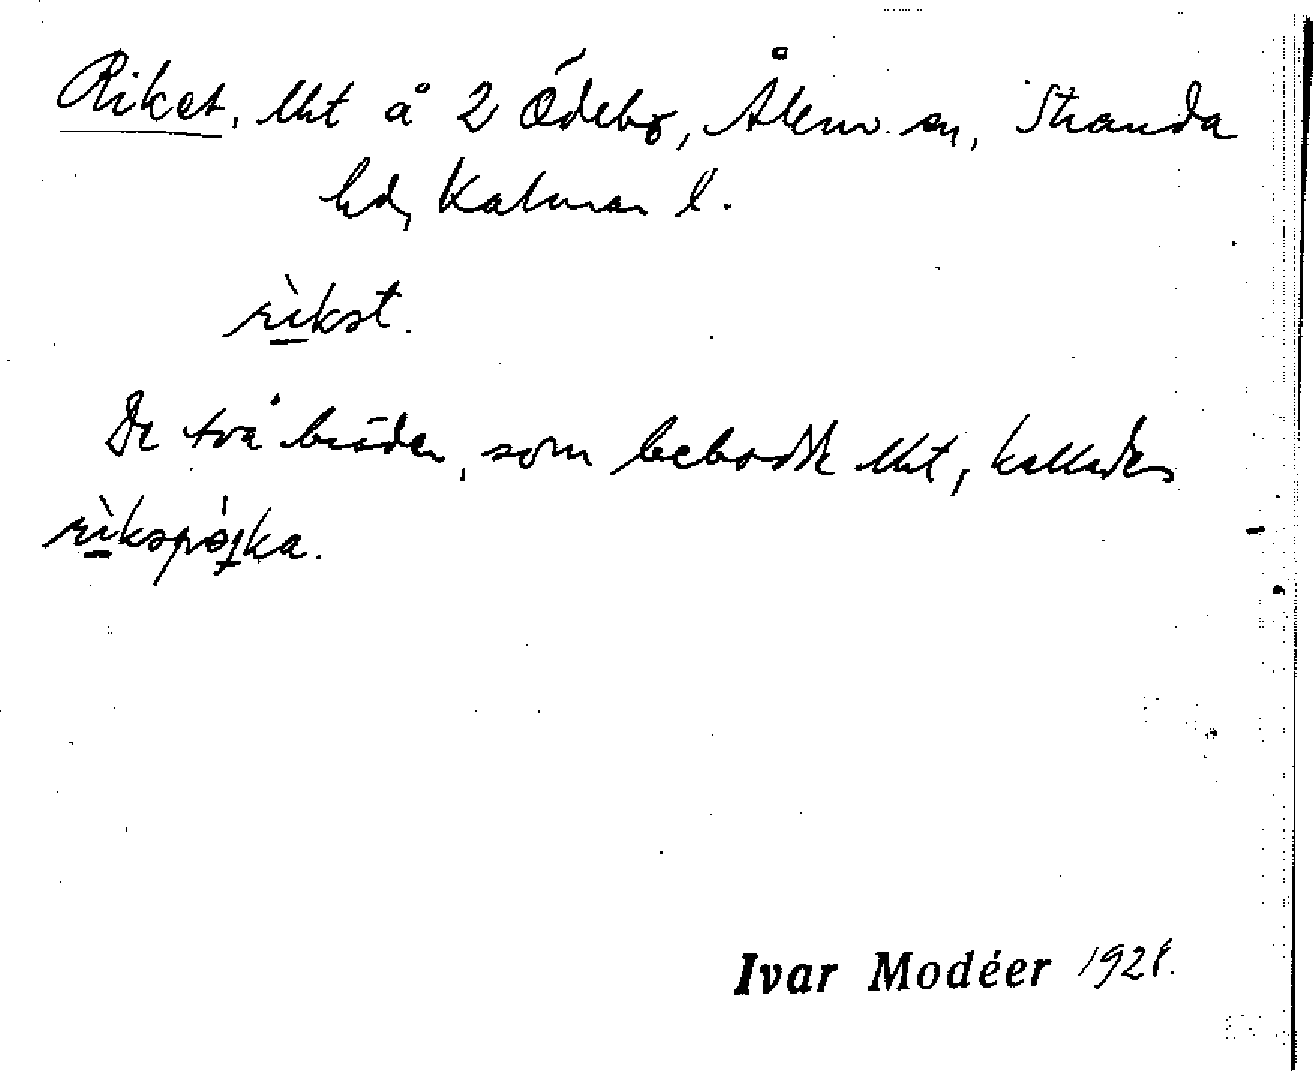 Riket, lht å 2 Ödebo, Ålems sn, Stranda
hd, Kalmar l.
rìkət.
De två bröder, som bebodde lht, kallades
rìkəpòjka.
Ivar Modéer 192